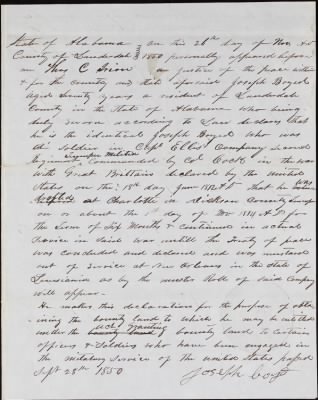 State of Alabama on this 26th day of Nov AD
County of Lauderdale 1850 personally appeared before
me Thos C a Justice of the peace within
& for the county and State aforesaid Joseph Boyed
aged Seventy years a resident of Lauderdale
County in the State of Alabama who being
duly sworn according to Law declares that
he is the identical Joseph Boyed who was
a Soldier in Capt Ellis Company second
Regiment Tennessee Militia Comanded by Col Cock in the war
with Great Brittain declared by the united
States on the 18th day June 1812 AD that he was
drafted at Charlotte in Dickson County
on or about the day of Nov 1814 AD for
the term of Six Months & Continued in actual
service in Said war untill the treaty of peace
was concluded and declared and was mustard
out of Service at New Orleans in the State of
Louisiania as by the muster Roll of said Company
will appear.
He makes this declaration for the purpose of obta
ining the bounty land to which he may be intitled
under the act Granting bounty land to certain
officers & Soldiers who have been engaged in
the military service of the united States passed
Sept 28th 1850
Joseph